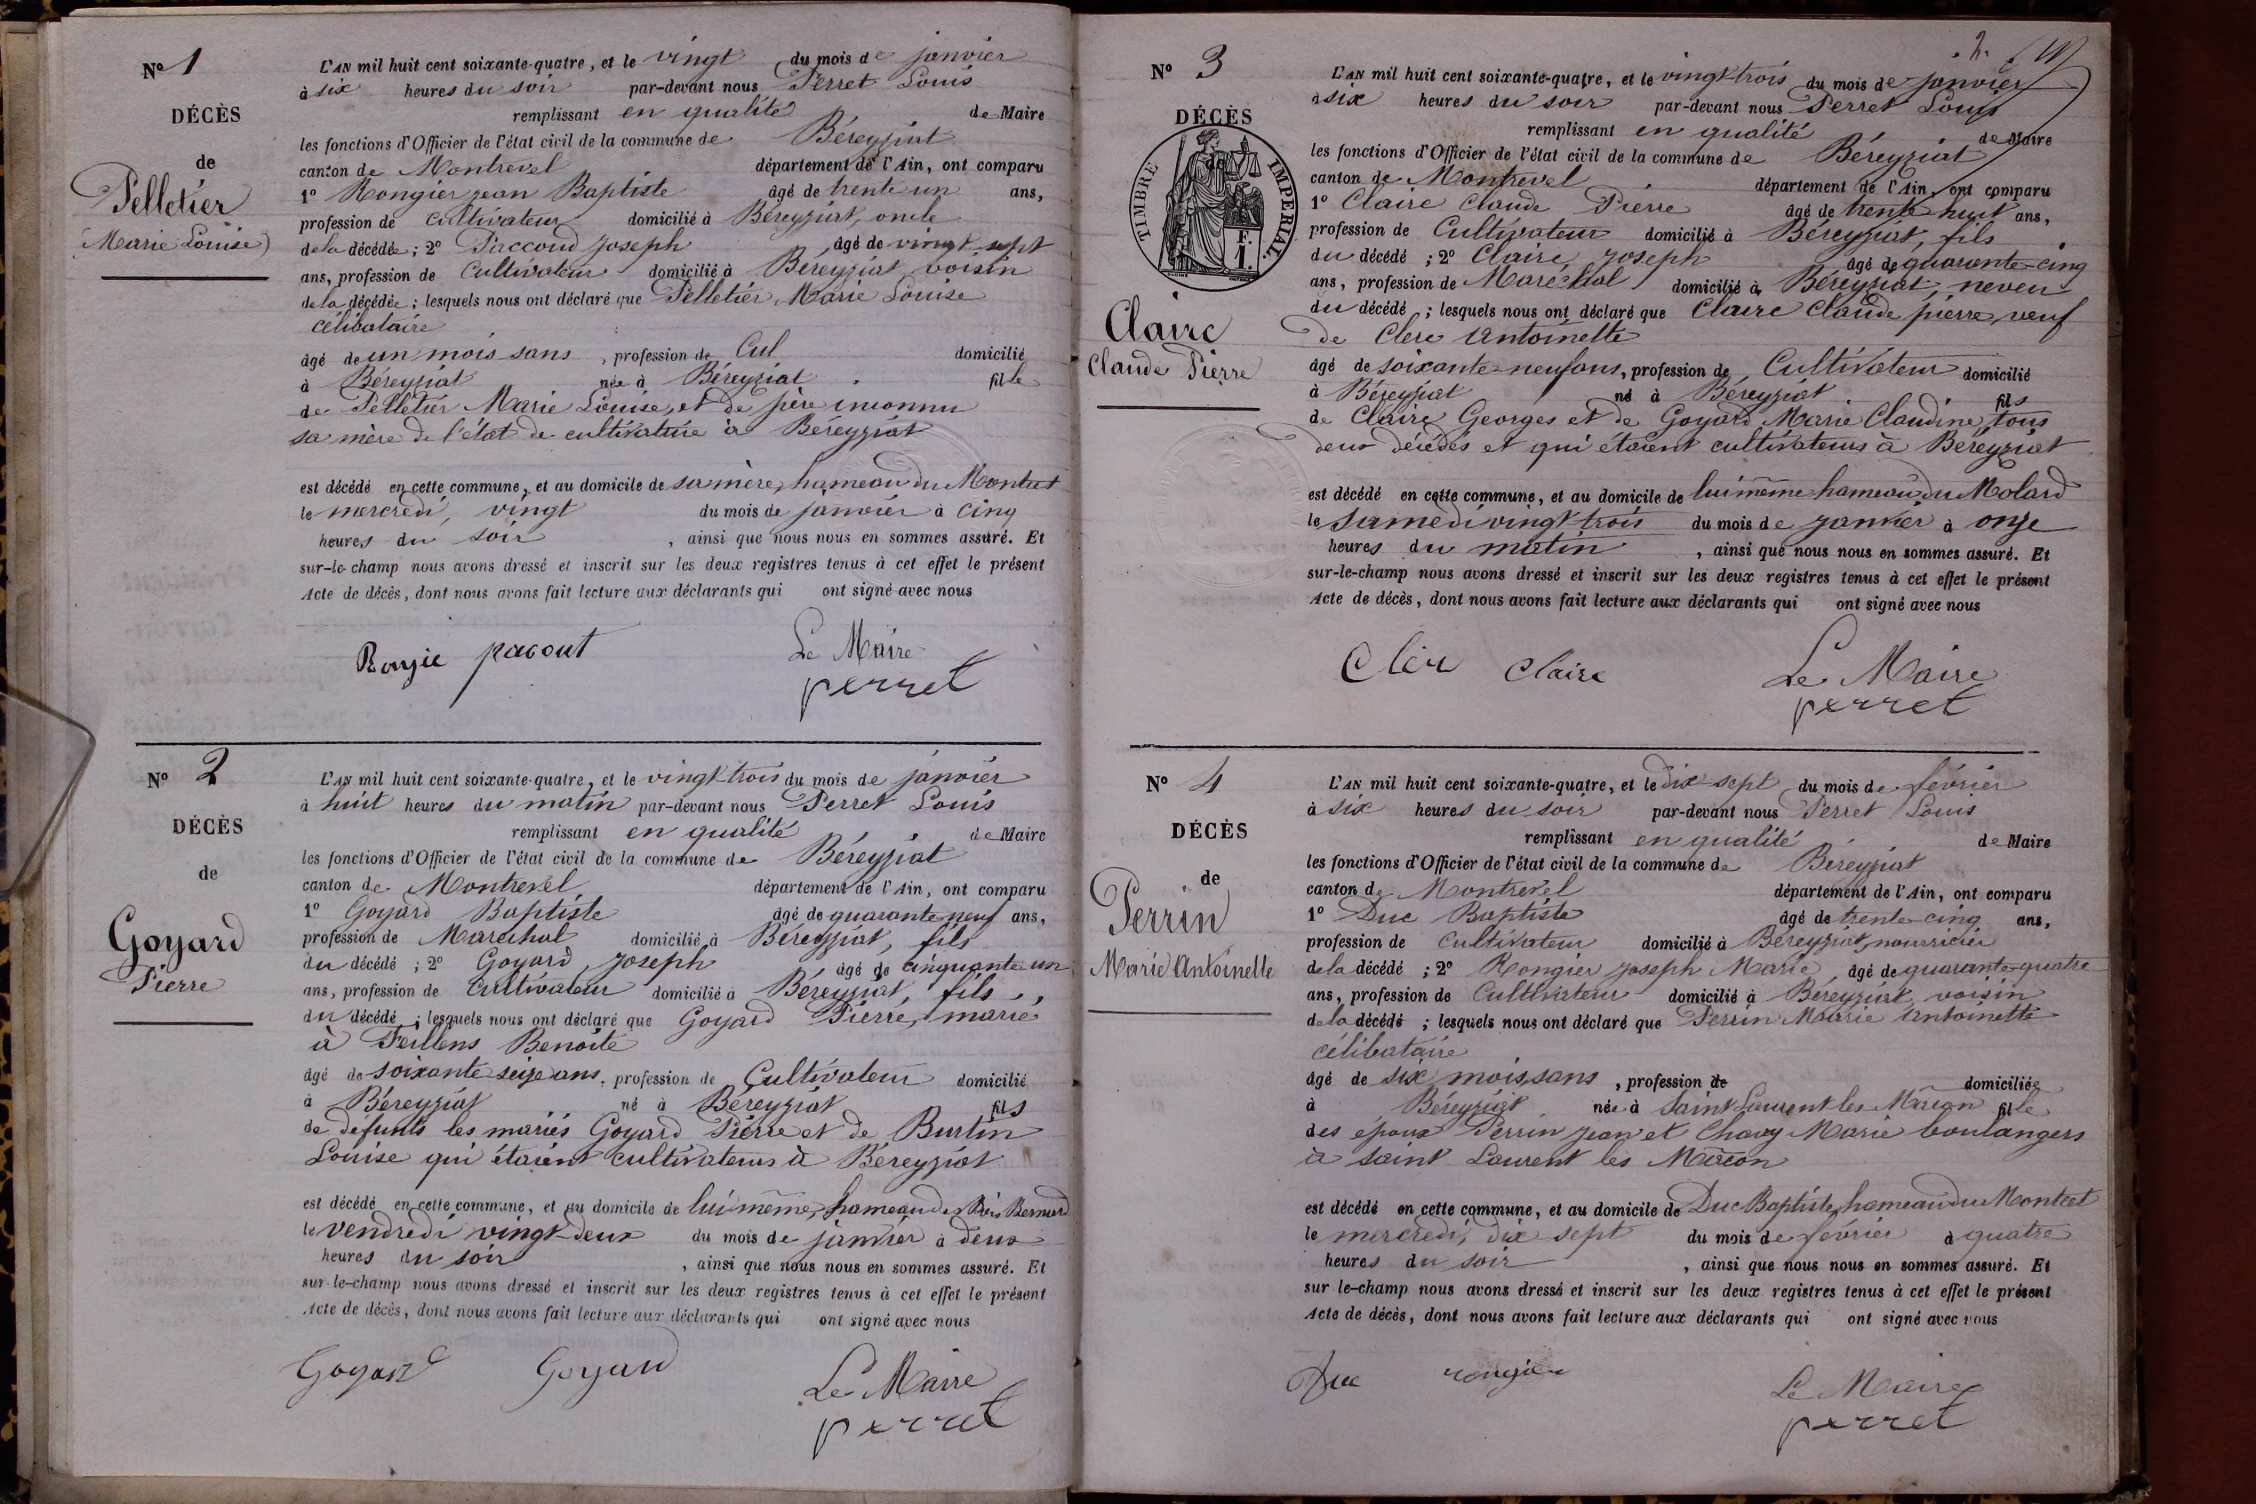 Nº 1
DÉCÈS
de
Pelletier
(Marie Louise)
L'AN mil huit cent soixante-quatre, et le vingt du mois de janvier
à six heures du soir par-devant nous Perret Louis
remplissant en qualité de Maire
les fonctions d'Officier de l'état civil de la commune de Béreyziat
canton de Montrevel département de l'Ain, ont comparu
1º Rongier jean Baptiste âgé de trente un ans,
profession de cultivateur domicilié à Béreyziat, oncle
de la décédée ; 2º Paccoud joseph âgé de vingt-sept
ans, profession de cultivateur domicilié à Béreyziat voisin
de la décédée ; lesquels nous ont déclaré que Pelletier Marie Louise
célibataire
âgé de un mois sans , profession de Cul domicilié
à Béreyziat née à Béreyziat fille
de Pelletier Marie Louise, et de père inconnu
sa mère de l'état de cultivatrice à Béreyziat
est décédé en cette commune, et au domicile de sa mère, hameau du Montcet
le mercredi, vingt du mois de janvier à cinq
heures du soir , ainsi que nous nous en sommes assuré. Et
sur-le-champ nous avons dressé et inscrit sur les deux registres tenus à cet effet le présent
Acte de décès, dont nous avons fait lecture aux déclarants qui ont signé avec nous
Le Maire
Rongie pacout
perret
Nº 2
DÉCÈS
de
Goyard
Pierre
L'AN mil huit cent soixante-quatre, et le vingt-trois du mois de janvier
à huit heures du matin par-devant nous Perret Louis
remplissant en qualité de Maire
les fonctions d'Officier de l'état civil de la commune de Béreyziat
canton de Montrevel département de l'Ain, ont comparu
1º Goyard Baptiste âgé de quarante neuf ans,
profession de Maréchal domicilié à Béreyziat, fils
du décédé ; 2º Goyard, joseph âgé de cinquante un
ans, profession de Cultivateur domicilié à Béreyziat, fils
du décédé ; lesquels nous ont déclaré que Goyard Pierre, marié
à Feillens Benoite
âgé de soixante seize ans, profession de Cultivateur domicilié
à Béreyziat né à Béreyziat fils
de défunts les mariés Goyard Pierre et de Burtin
Louise qui étaient cultivateurs à Béreyziat
est décédé en cette commune, et au domicile de lui même, hameau des Bois Bernard
le vendredi vingt-deux du mois de janvier à deux
heures du soir , ainsi que nous nous en sommes assuré. Et
sur-le-champ nous avons dressé et inscrit sur les deux registres tenus à cet effet le présent
Acte de décès, dont nous avons fait lecture aux déclarants qui ont signé avec nous
Goyard Goyard Le Maire
perret
2.
Nº 3
DÉCÈS
TIMBRE IMPÉRIAL
F.
1.
Claire
Claude Pierre
L'AN mil huit cent soixante-quatre, et le vingt-trois du mois de janvier
à six heures du soir par-devant nous Perret Louis
remplissant en qualité de Maire
les fonctions d'Officier de l'état civil de la commune de Béreyziat
canton de Montrevel département de l'Ain, ont comparu
1º Claire Claude Pierre âgé de trente huit ans,
profession de Cultivateur domicilié à Béreyziat, fils
du décédé ; 2º Claire, joseph âgé de quarante-cinq
ans, profession de Maréchal domicilié à Béreyziat, neveu
du décédé ; lesquels nous ont déclaré que Claire Claude pierre, veuf
de Clerc Antoinette
âgé de soixante-neuf ans, profession de Cultivateur domicilié
à Béreyziat né à Béreyziat fils
de Claire Georges et de Goyard Marie Claudine, tous
deux décédés et qui étaient cultivateurs à Béreyziat
est décédé en cette commune, et au domicile de lui même hameau du Molard
le samedi vingt trois du mois de janvier à onze
heures du matin , ainsi que nous nous en sommes assuré. Et
sur-le-champ nous avons dressé et inscrit sur les deux registres tenus à cet effet le présent
Acte de décès, dont nous avons fait lecture aux déclarants qui ont signé avec nous
Claire Le Maire
perret
Nº 4
DÉCÈS
de
Perrin
Marie Antoinette
L'AN mil huit cent soixante-quatre, et le dix sept du mois de février
à six heures du soir par-devant nous Perret Louis
remplissant en qualité de Maire
les fonctions d'Officier de l'état civil de la commune de Béreyziat
canton de Montrevel département de l'Ain, ont comparu
1º Duc Baptiste âgé de trente-cinq ans,
profession de cultivateur domicilié à Béreyziat, nourricier
de la décédé ; 2º Rongier joseph Marie, âgé de quarante-quatre
ans, profession de Cultivateur domicilié à Béreyziat, voisin
de la décédé ; lesquels nous ont déclaré que Perrin Marie Antoinette
célibataire
âgé de six mois, sans , profession de domiciliée
à Béreyziat née à Saint Laurent les Mâcon fille
des époux Perrin jean et Chavy Marie boulangers
à saint Laurent les Mâcon
est décédé en cette commune, et au domicile de Duc Baptiste, hameau du Montcet
le mercredi, dix sept du mois de février à quatre
heures du soir , ainsi que nous nous en sommes assuré. Et
sur le-champ nous avons dressé et inscrit sur les deux registres tenus à cet effet le présent
Acte de décès, dont nous avons fait lecture aux déclarants qui ont signé avec nous
Duc rongier Le Maire
perret